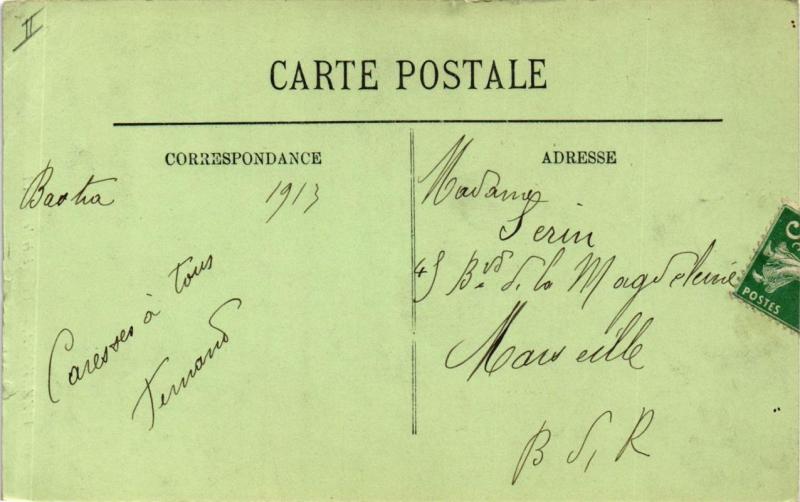 II
CARTE POSTALE
CORRESPONDANCE
Bastia 1913
Caresses à tous
Fernand
ADRESSE
Madame
Serin
45 Bvd de la Magdeleine
Marseille
B d R
POSTES